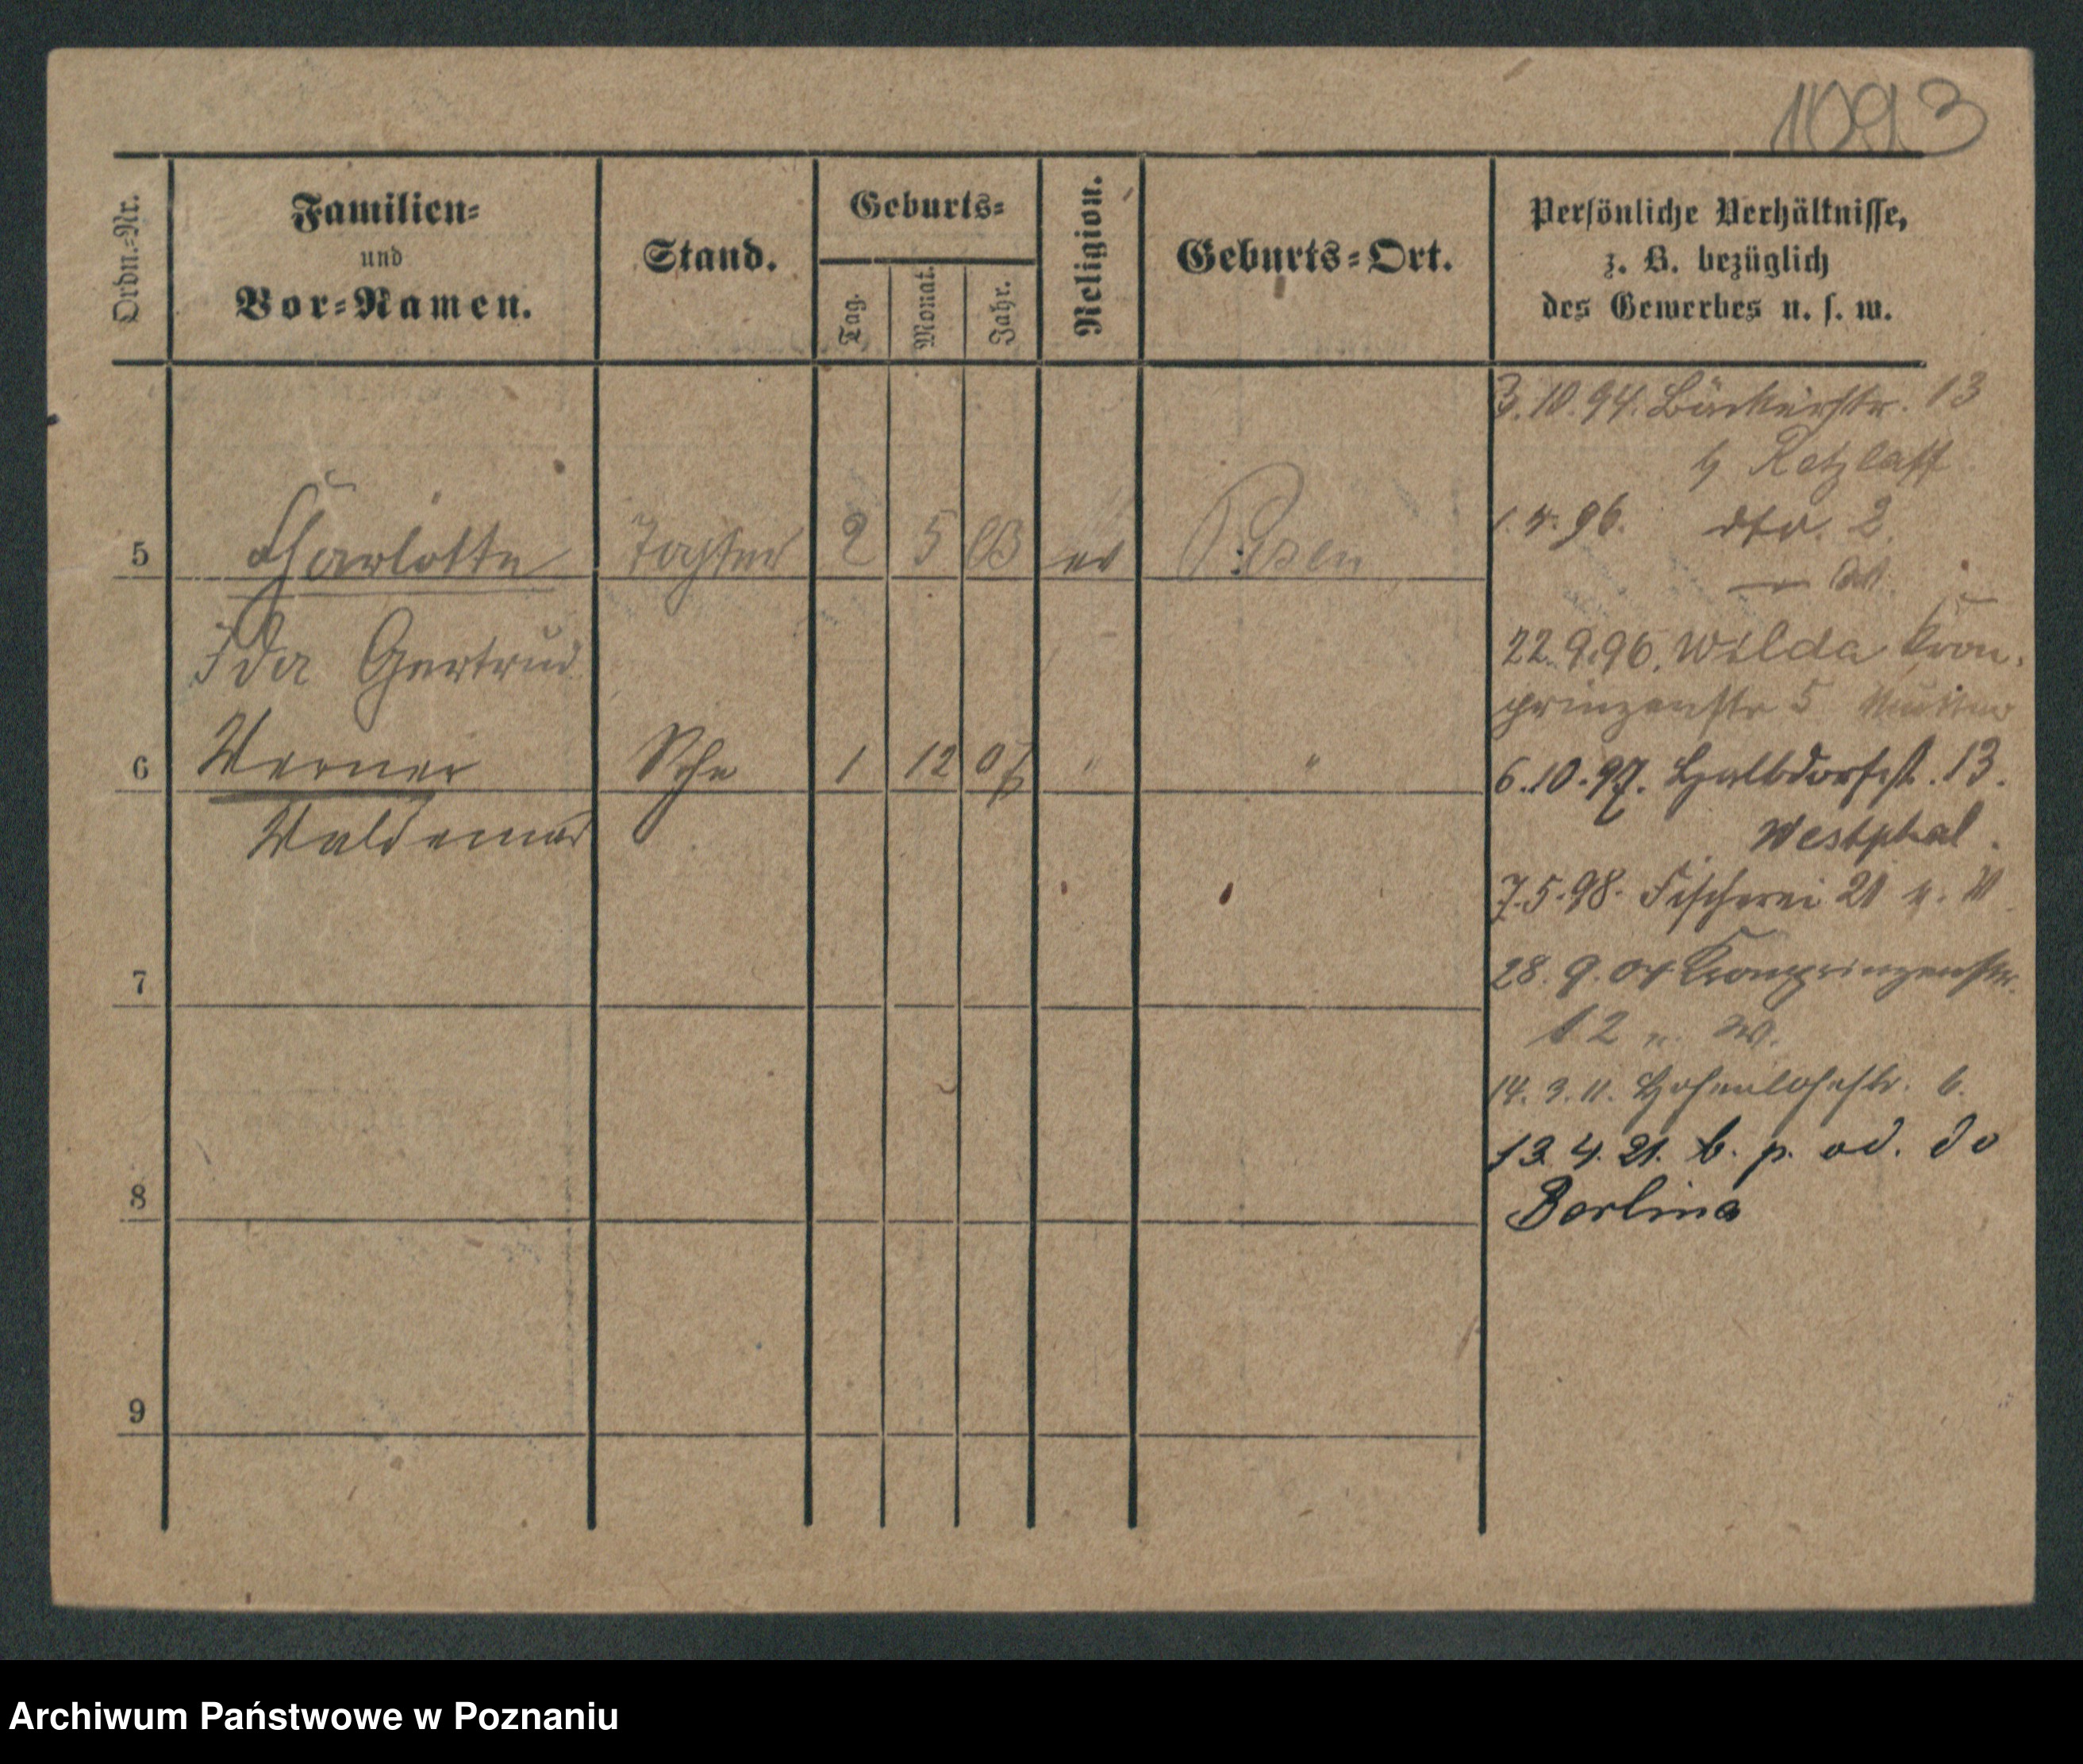 1093
Ordn.-Nr.
Familien-
und
Vor-Namen.
Stand.
Geburts-
Tag.
Monat.
Jahr.
Religion.
Geburts-Ort.
Persönliche Verhältnisse,
z. B. bezüglich
des Gewerbes u. s. w.
5 Charlotte Tochter 2 5 03 ev Posen
Ida Gertrud
6 Werner Sohn 1 12 07 " "
Waldemar
7
8
9
3.10.94. Bäckerstr. 13
b Retzlaff
1.4.96. dto. 2.
22.9.96. Wilda Kron-
prinzenstr 5
6.10.97. Halbdorfst. 13.
Westphal.
7.5.98. Fischerei 21
28.9.04 Kronprinzenstr.
12 n. W.
14.3.11. Hohenlohestr. 6.
13.4.21. b. p. od. do
Berlina
Archiwum Państwowe w Poznaniu